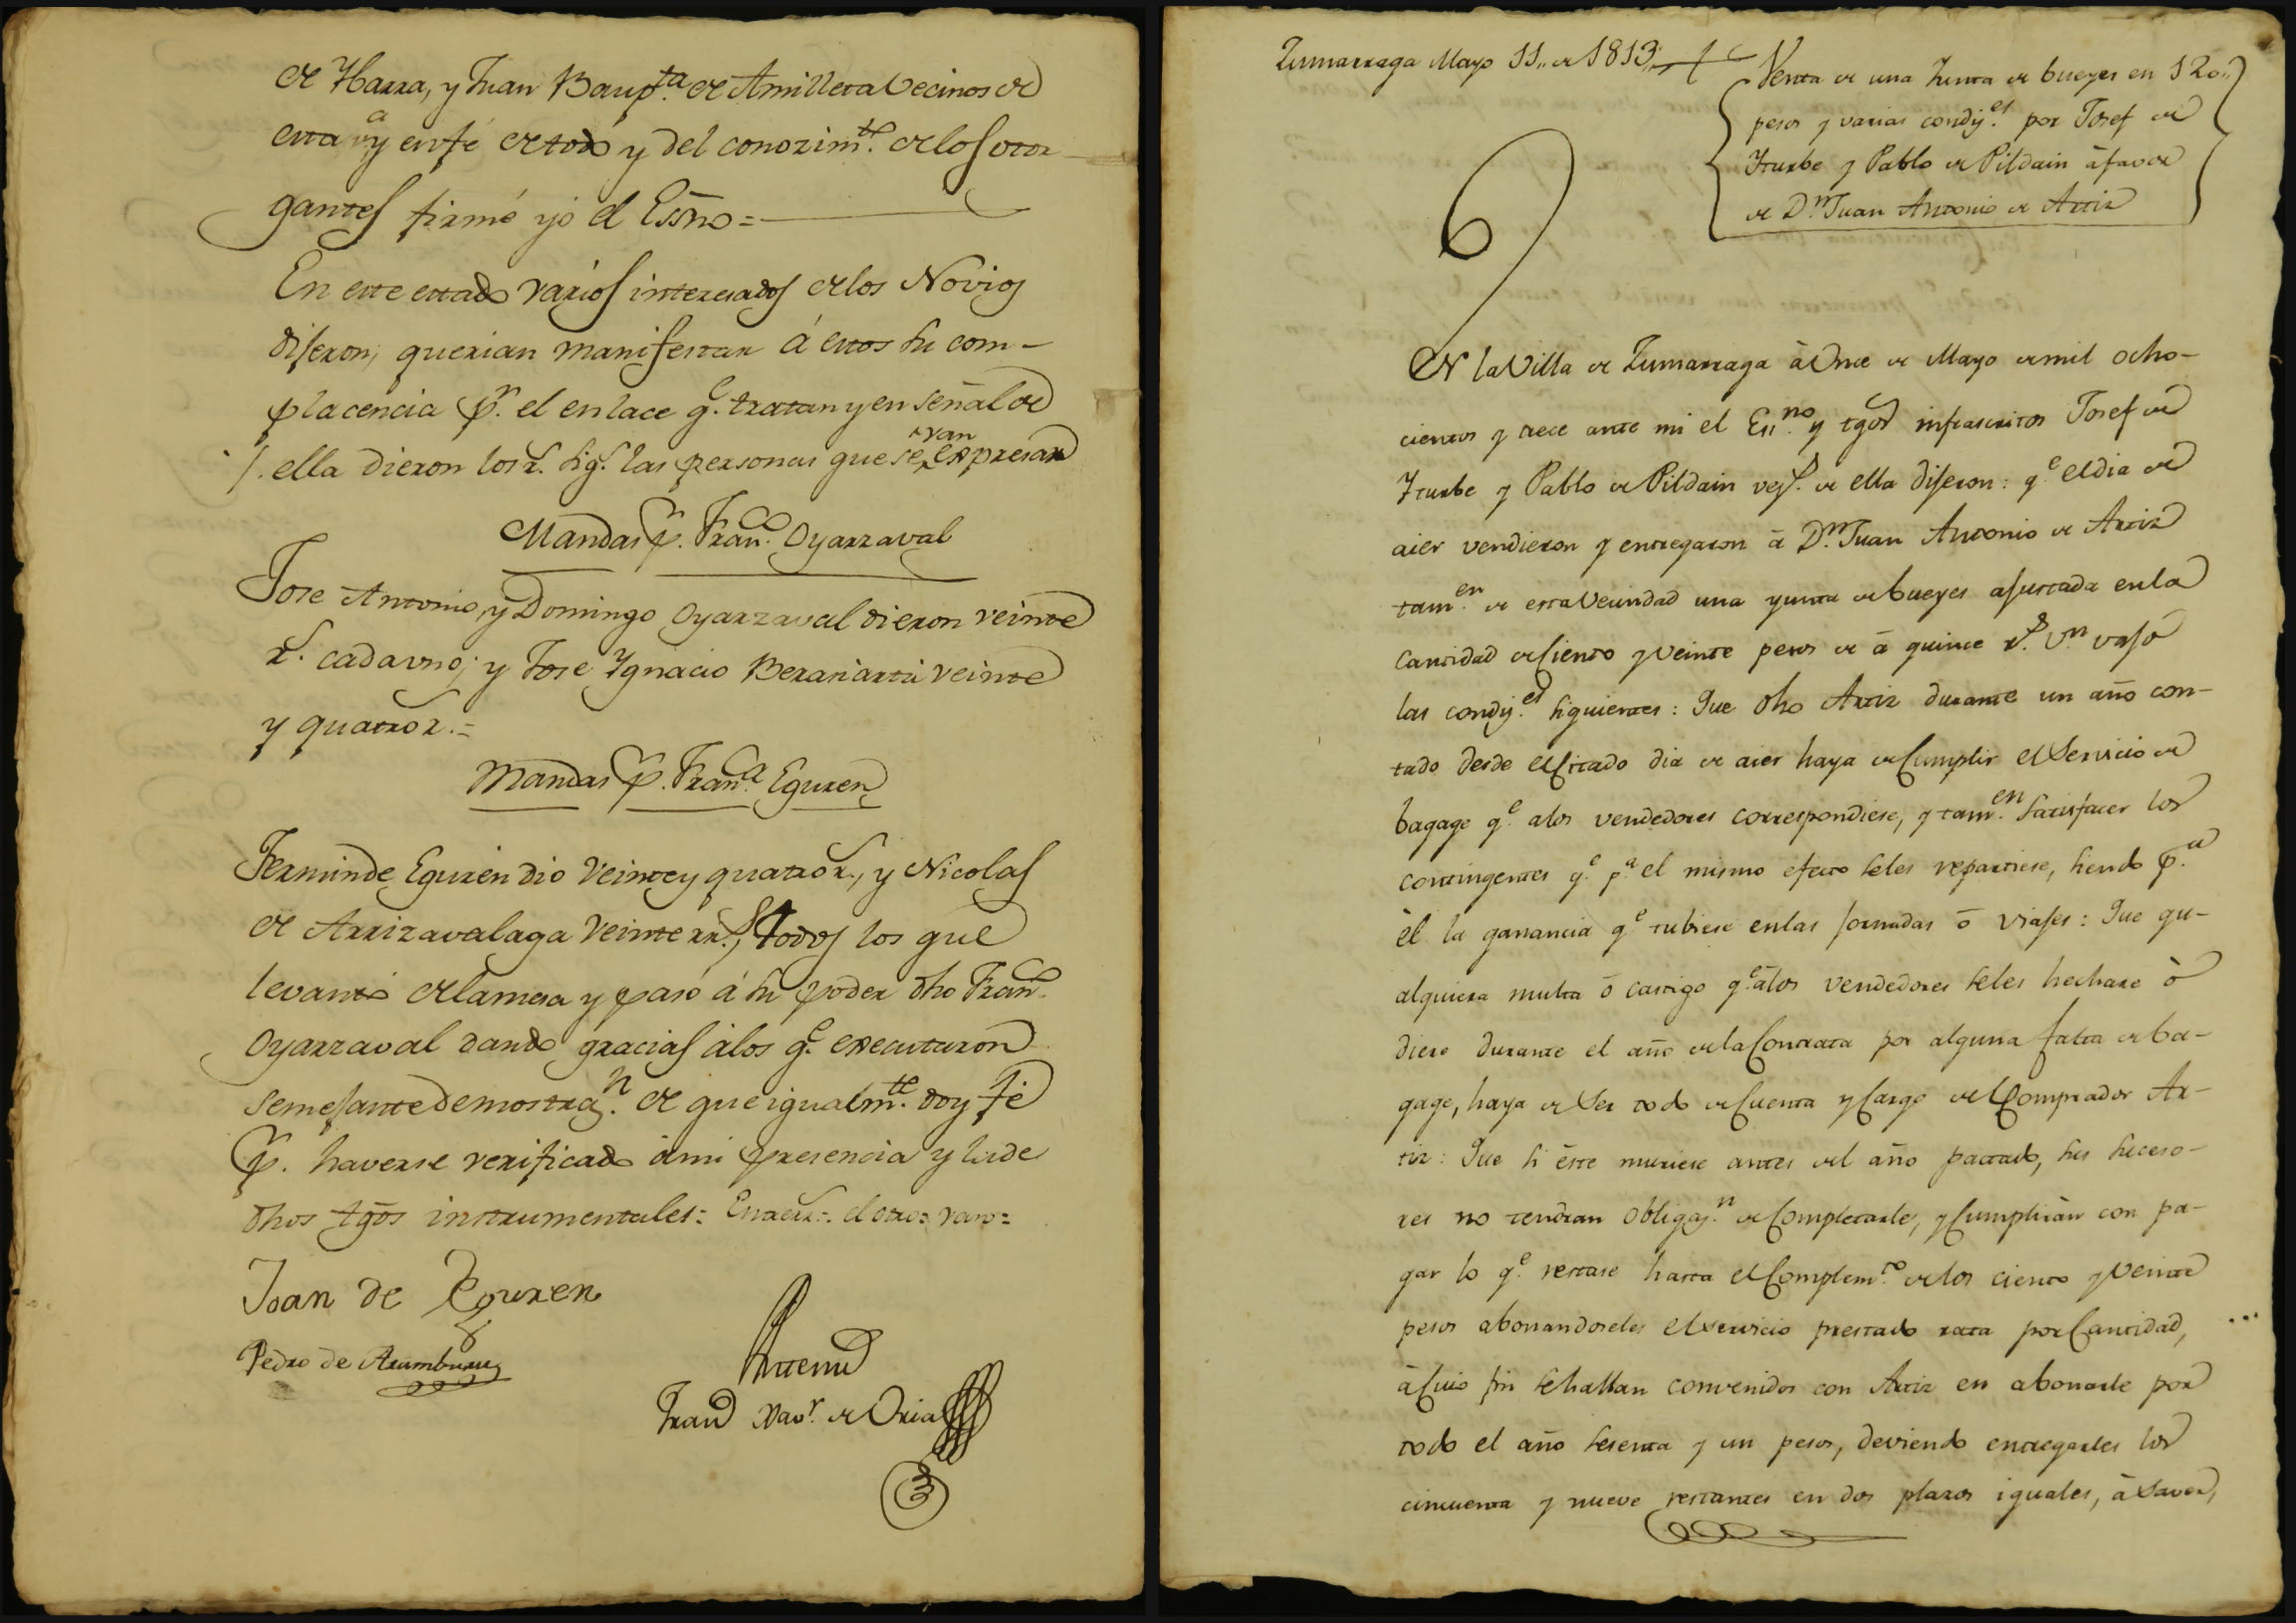 de Ybarra, y Juan Baup.ta de Amilleta Vecinos de
esta v.a y en fé de todo y del conozim.te de los otor
gantes firmé yo el Essno=
En este estado varios interesados de los Novios
dijeron, querian manifestar á estos su com-
placencia p.r el enlace q.e tratan y en señal de
ella dieron los r.s sig.s las personas que se van expresan
Mandas p.r Fran.co Oyarzaval
Jose Antonio, y Domingo Oyarzaval dieron veinte
r.s cada uno; y Jose Ygnacio Berasiartu veinte
y quatro r.=
Mandas p.r Fran.ca Eguren
Fermin de Eguren dio veinte y quatro r.s, y Nicolas
de Arrizavalaga veinte rr.s, todos los que
levantó de la mesa y pasó á su poder dho Fran.co
Oyarzaval dando gracias á los q.e executaron
semejante demostraz.n de que igualm.te doy fé
p.r haverse verificado á mi presencia y la de
dhos tgōs instrumentales: el otro= van=
Joan de Eguren
Pedro de Aramburu
Antemi
Fran.co Xav.r de Oria
3
Zumarraga Mayo 11,, de 1813,,
Venta de una Junta de bueyes en 120,,
pesos y varias condiz.es por Josef de
Yturbe y Pablo de Pildain á favor
de D.n Juan Antonio de Artiz
6
EN la Villa de Zumarraga à Once de Mayo de mil ocho-
cientos y trece ante mi el Ess.no y tgos infrascritos Josef de
Yturbe y Pablo de Pildain vez.s de ella dijeron: q.e el dia de
aier vendieron y entregaron à D.n Juan Antonio de Artiz
tam.en de esta Vecindad una yunta de bueyes ajustada en la
cantidad de Ciento y Veinte pesos de á quince r.s v.n vajo
las condiz.es siguientes: Que dho Artiz durante un año con-
tado desde el Citado dia de aier haya de Cumplir el Servicio de
bagage q.e a los vendedores correspondiese, y tam.en satisfacer los
contingentes q.e p.a el mismo efecto se les repartiese, siendo p.a
èl la ganancia q.e tubiese en las jornadas ó viajes: Que qu-
alquiera multa ó castigo q.e á los vendedores se les hechare ò
diere durante el año de la Contrata por alguna falta de ba-
gage, haya de Ser todo de Cuenta y Cargo del Comprador Ar-
tiz: Que si èste muriese antes del año pactado, sus suceso-
res no tendran obligaz.n de Completarle, y Cumpliràn con pa-
gar lo q.e restase hasta el Complem.to de los ciento y Veinte
pesos abonandoseles el servicio prestado rata por Cantidad,
à Cuio fin se hallan convenidos con Artiz en abonarle por
todo el año sesenta y un pesos, deviendo entregarles los
cincuenta y nueve restantes en dos plazos iguales, à Saver,